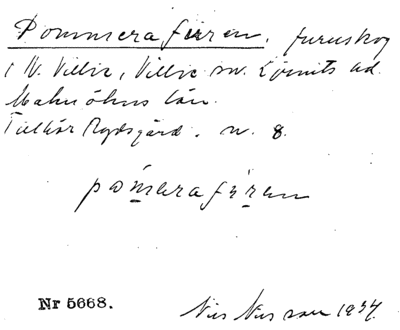 Pommerafuren, furuskog
i V. Villie, Villie sn. Ljunits hd.
Malmöhus län.
Tillhör Rydsgård. nr. 8.
pom̄erafuren
Nr 5668.
Nils Nilsson 1934.